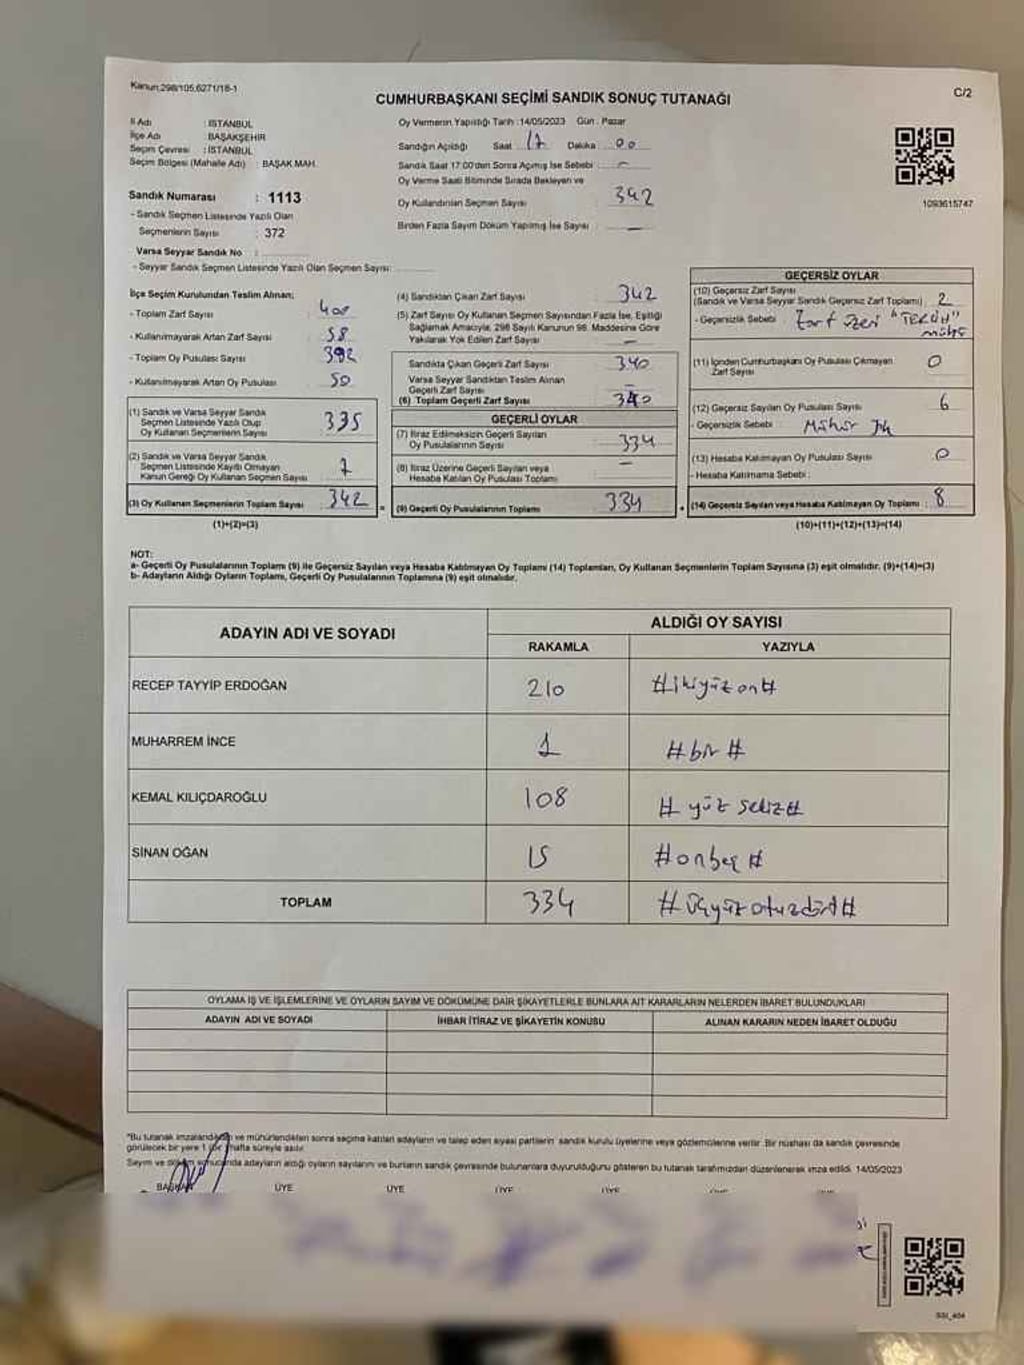 Kanun:298/105,6271/18-1
CUMHURBAŞKANI SEÇİMİ SANDIK SONUÇ TUTANAĞI
C/2
İl Adı : İSTANBUL
İlçe Adı : BAŞAKŞEHİR
Seçim Çevresi : İSTANBUL
Seçim Bölgesi (Mahalle Adı) : BAŞAK MAH.
Sandık Numarası : 1113
- Sandık Seçmen Listesinde Yazılı Olan
Seçmenlerin Sayısı : 372
Varsa Seyyar Sandık No :
- Seyyar Sandık Seçmen Listesinde Yazılı Olan Seçmen Sayısı:
Oy Vermenin Yapıldığı Tarih :14/05/2023 Gün : Pazar
Sandığın Açıldığı Saat 17 Dakika 00
Sandık Saat 17:00'den Sonra Açılmış İse Sebebi : -
Oy Verme Saati Bitiminde Sırada Bekleyen ve
Oy Kullandırılan Seçmen Sayısı 342
Birden Fazla Sayım Döküm Yapılmış İse Sayısı : -
1093615747
İlçe Seçim Kurulundan Teslim Alınan;
- Toplam Zarf Sayısı : 400
- Kullanılmayarak Artan Zarf Sayısı : 58
- Toplam Oy Pusulası Sayısı : 392
- Kullanılmayarak Artan Oy Pusulası : 50
(1) Sandık ve Varsa Seyyar Sandık
Seçmen Listesinde Yazılı Olup
Oy Kullanan Seçmenlerin Sayısı 335
(2) Sandık ve Varsa Seyyar Sandık
Seçmen Listesinde Kayıtlı Olmayan
Kanun Gereği Oy Kullanan Seçmen Sayısı 7
(3) Oy Kullanan Seçmenlerin Toplam Sayısı 342
(1)+(2)=(3)
(4) Sandıktan Çıkan Zarf Sayısı : 342
(5) Zarf Sayısı Oy Kullanan Seçmen Sayısından Fazla İse, Eşitliği
Sağlamak Amacıyla, 298 Sayılı Kanunun 98. Maddesine Göre
Yakılarak Yok Edilen Zarf Sayısı : -
Sandıkta Çıkan Geçerli Zarf Sayısı : 340
Varsa Seyyar Sandıktan Teslim Alınan
Geçerli Zarf Sayısı : -
(6) Toplam Geçerli Zarf Sayısı : 340
GEÇERLİ OYLAR
(7) İtiraz Edilmeksizin Geçerli Sayılan
Oy Pusulalarının Sayısı : 334
(8) İtiraz Üzerine Geçerli Sayılan veya
Hesaba Katılan Oy Pusulası Toplamı : -
(9) Geçerli Oy Pusulalarının Toplamı : 334
GEÇERSİZ OYLAR
(10) Geçersiz Zarf Sayısı
(Sandık ve Varsa Seyyar Sandık Geçersiz Zarf Toplamı) : 2
- Geçersizlik Sebebi : Zarf üzeri "TERCİH"
mühr
(11) İçinden Cumhurbaşkanı Oy Pusulası Çıkmayan
Zarf Sayısı : 0
(12) Geçersiz Sayılan Oy Pusulası Sayısı : 6
- Geçersizlik Sebebi : Mühür
(13) Hesaba Katılmayan Oy Pusulası Sayısı : 0
- Hesaba Katılmama Sebebi :
(14) Geçersiz Sayılan veya Hesaba Katılmayan Oy Toplamı : 8
(10)+(11)+(12)+(13)=(14)
NOT:
a- Geçerli Oy Pusulalarının Toplamı (9) ile Geçersiz Sayılan veya Hesaba Katılmayan Oy Toplamı (14) Toplamları, Oy Kullanan Seçmenlerin Toplam Sayısına (3) eşit olmalıdır. (9)+(14)=(3)
b- Adayların Aldığı Oyların Toplamı, Geçerli Oy Pusulalarının Toplamına (9) eşit olmalıdır.
ADAYIN ADI VE SOYADI
ALDIĞI OY SAYISI
RAKAMLA YAZIYLA
RECEP TAYYİP ERDOĞAN 210 #ikiyüzon#
MUHARREM İNCE 1 #bir#
KEMAL KILIÇDAROĞLU 108 # yüz sekiz#
SİNAN OĞAN 15 #onbeş#
TOPLAM 334 #üçyüzotuzdört#
OYLAMA İŞ VE İŞLEMLERİNE VE OYLARIN SAYIM VE DÖKÜMÜNE DAİR ŞİKAYETLERLE BUNLARA AİT KARARLARIN NELERDEN İBARET BULUNDUKLARI
ADAYIN ADI VE SOYADI İHBAR İTİRAZ VE ŞİKAYETİN KONUSU ALINAN KARARIN NEDEN İBARET OLDUĞU
*Bu tutanak imzalandıktan ve mühürlendikten sonra seçime katılan adayların ve talep eden siyasi partilerin sandık kurulu üyelerine veya gözlemcilerine verilir. Bir nüshası da sandık çevresinde
görülecek bir yere 1 (bir) hafta süreyle asılır.
Sayım ve döküm sonucunda adayların aldığı oyların sayılarını ve bunların sandık çevresinde bulunanlara duyurulduğunu gösteren bu tutanak tarafımızdan düzenlenerek imza edildi. 14/05/2023
BAŞKAN ÜYE ÜYE ÜYE ÜYE
SSI_404